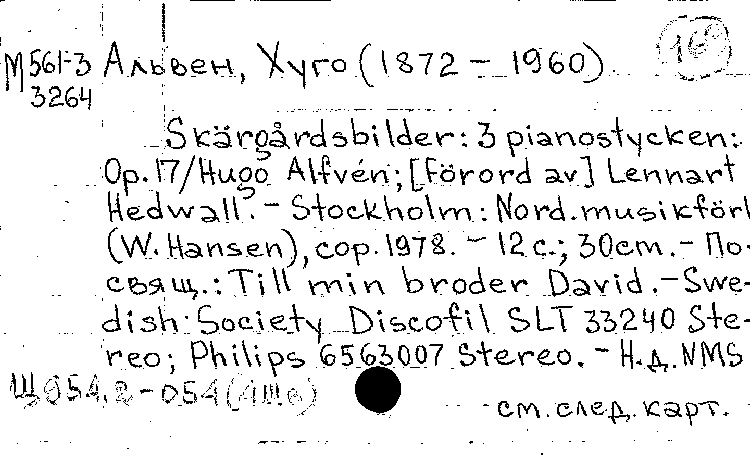 М561-3 Альвен, Хуго (1872 – 1960)
3264
Skärgårdsbilder: 3 pianostycken:
Op.17/Hugo Alfvén; [Förord av] Lennart
Hedwall. – Stockholm: Nord. musikförl
(W. Hansen), cop. 1978. – 12 с.; 30cm. – По-
свящ.: Till min broder David. – Swe-
dish Society Discofil SLT 33240 Ste-
reo; Philips 6563007 Stereo. – Н.д. NMS
см. след. карт.